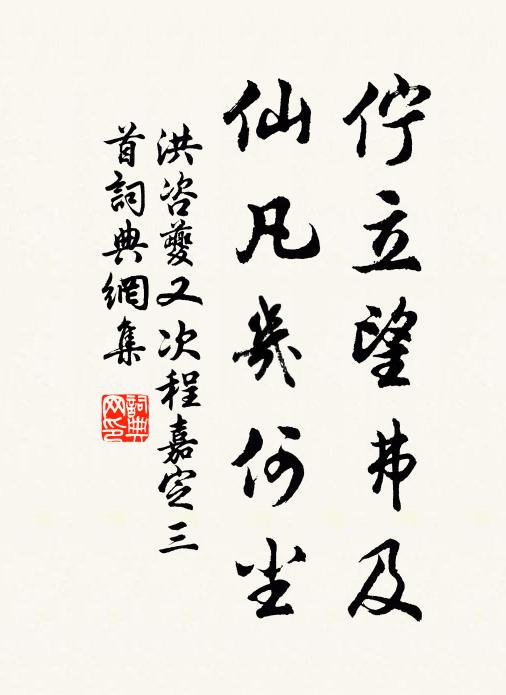 佇立望弗及
仙凡幾何尘
洪咨夔又次程嘉定三
首詞典網集
詞典网印